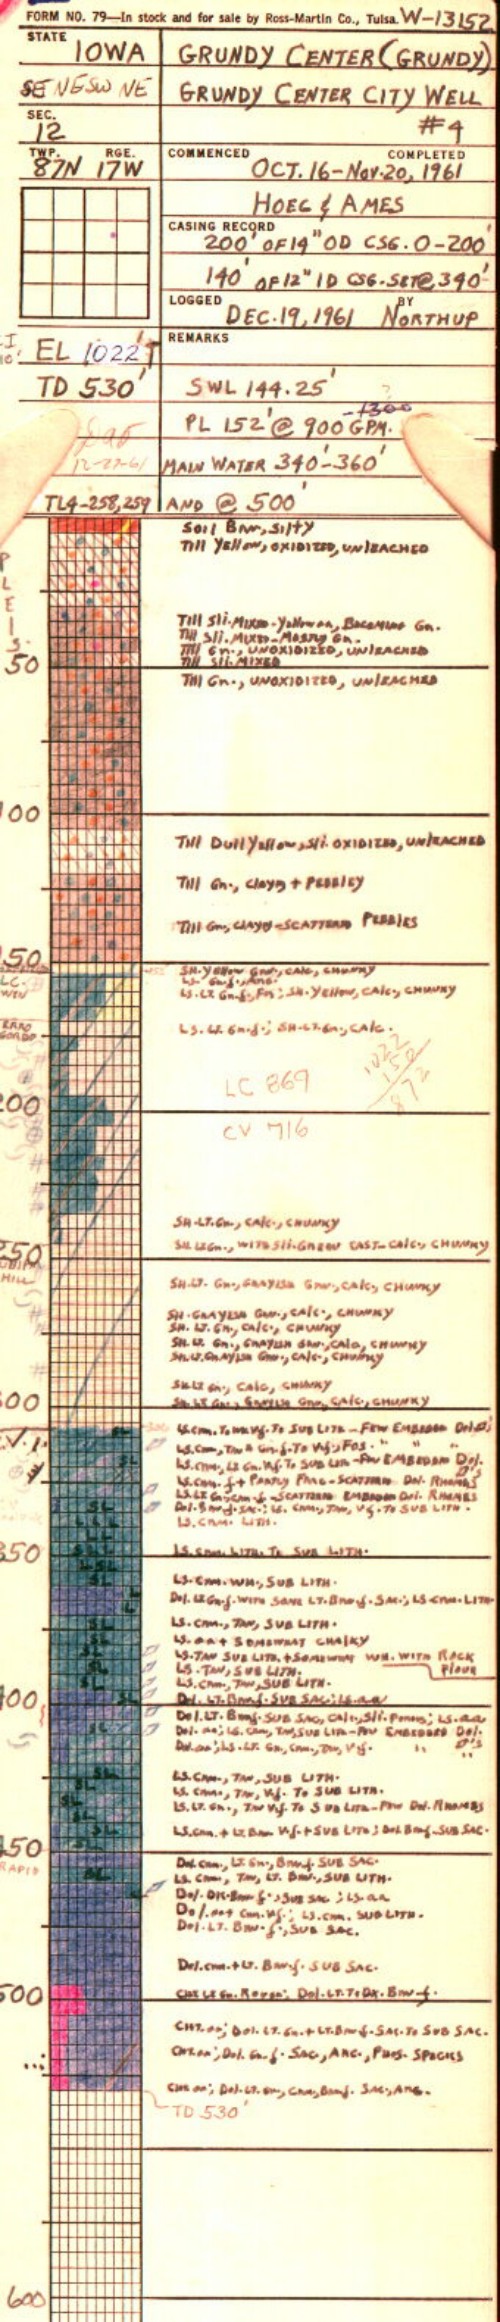 FORM NO. 79—In stock and for sale by Ross-Martin Co., Tulsa. W-13152
STATE IOWA
GRUNDY CENTER (GRUNDY)
SE NE SW NE
GRUNDY CENTER CITY WELL
SEC. 12
#4
TWP. 87N RGE. 17W
COMMENCED COMPLETED
OCT. 16-NOV. 20, 1961
HOEG & AMES
CASING RECORD
200' OF 14" OD CSG. 0-200'
140' OF 12" ID CSG-SET@ 340'
LOGGED BY
DEC. 19, 1961 NORTHUP
EL 1022' T
REMARKS
TD 530'
SWL 144.25'
?
-1300
PL 152' @ 900 GPM.
12-27-61
MAIN WATER 340'-360'
TL4-258,259
AND @ 500'
Soil Brn, silty
Till Yellow, OXIDIZED, UNLEACHED
P
L
E
I
S.
Till Sli. Mixed-Yellow on, Becoming Gn.
Till Sli. Mixed-Mostly Gn.
Till Gn., UNOXIDIZED, UNLEACHED
Till Sli. MIXED
50
Till Gn., UNOXIDIZED, UNLEACHED
100
Till Dull Yellow, Sli. OXIDIZED, UNLEACHED
Till Gn., Clayey + PEBBLEY
Till Gn, Clayey-SCATTERED PEBBLES
150
SH. Yellow Gnn, CALC, CHUNKY
LS. LT. Gn.f., Fos; SH. Yellow, CALC, CHUNKY
LS. LT. Gn.f.; SH-LT. Gn., CALC.
GORDO
1022
150
872
LC 869
200
CV 716
SH-LT. Gn., CALC., CHUNKY
SH. LT Gn., WITH Sli. Green CAST-CALC, CHUNKY
250
HILL
SH. LT. Gn., GRAYISH Gnn., CALC, CHUNKY
SH-GRAYISH Gnn., CALC., CHUNKY
SH. LT. Gn., CALC., CHUNKY
SH. LT. Gn., GRAYISH Gnn., CALC, CHUNKY
SH. LT. GRAYISH Gnn., CALC., CHUNKY
SH. LT Gn., CALC, CHUNKY
300
SH. LT Gn., GRAYISH Gnn., CALC, CHUNKY
LS. Crm. LITH.
350
LS. Crm. LITH. To SUB LITH.
LS. Crm. WH., SUB LITH.
Dol. LT Gn.f. WITH SOME LT. Brn.f. SAC.; LS-Crm-LITH
LS. Crm., TAN, SUB LITH.
LS. aa + SOMEWHAT CHALKY
LS. TAN SUB LITH. + SOMEWHAT WH. WITH ROCK FLOUR
LS-TAN, SUB LITH.
LS. Crm, TAN, SUB LITH.
400
Dol. LT. Brn.f. SUB SAC; LS. aa
Dol. LT. Brn.f. SUB SAC, CALC., Sli. Porous; LS. aa
Dol. aa; LS. Crm, TAN, SUB LITH-FEW EMBEDDED Dol. D's
Dol. aa; LS. LT. Gn, Crm., TAN, V.f. " "
LS. Crm., TAN, SUB LITH.
LS. Crm., TAN, V.f. To SUB LITH.
LS. LT. Gn., TAN V.f. To SUB LITH-FEW Dol. RHOMBS
LS. Crm. + LT. Brn V.f. + SUB LITH; Dol. Brn.f-SUB SAC.
450
RAPID
Dol. Crm., LT. Gn., Brn.f. SUB SAC.
LS. Crm, TAN, LT. Brn., SUB LITH.
Dol. DK-Brn.f.; SUB SAC; LS. aa
Dol. aa + Crm. V.f.; LS. Crm. SUB LITH.
Dol. LT. Brn.f., SUB SAC.
Dol. Crm + LT. Brn.f. SUB SAC.
500
CHT. LT Gn. Rough; Dol. LT. To DK. Brn-f.
CHT. aa; Dol. LT. Gn. + LT. Brn.f. SAC. To SUB SAC.
CHT. aa; Dol. Gn.f. SAC., ARG., PHOS. SPECKS
CHT. aa; Dol. LT. Gn, Crm, Brn.f. SAC., ARG.
TD 530'
600